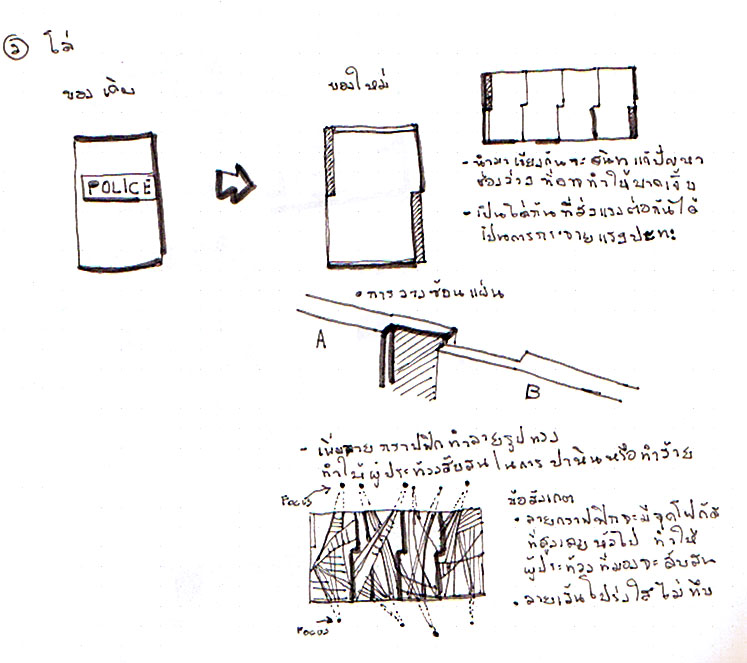 ② โล่
ของเดิม
ของใหม่
POLICE
- นำมาเรียงกันจะสนิท แก้ปัญหา
ช่องว่าง ที่อาจทำให้บาดเจ็บ
- เป็นโล่กันที่ส่งแรงต่อกันได้
เป็นการกระจายแรงปะทะ
• การวางซ้อนแผ่น
A
B
- เพิ่มลาย กราฟฟิก ทำลายรูปทรง
ทำให้ผู้ประท้วงสับสนในการ ปาหินหรือทำร้าย
Focus
ข้อสังเกต
• ลายกราฟฟิกจะมีจุดโฟกัส
ที่สูงเลยหัวไป ทำให้
ผู้ประท้วงที่มองจะสับสน
• ลายเส้นโปร่งใส ไม่ทึบ
Focus